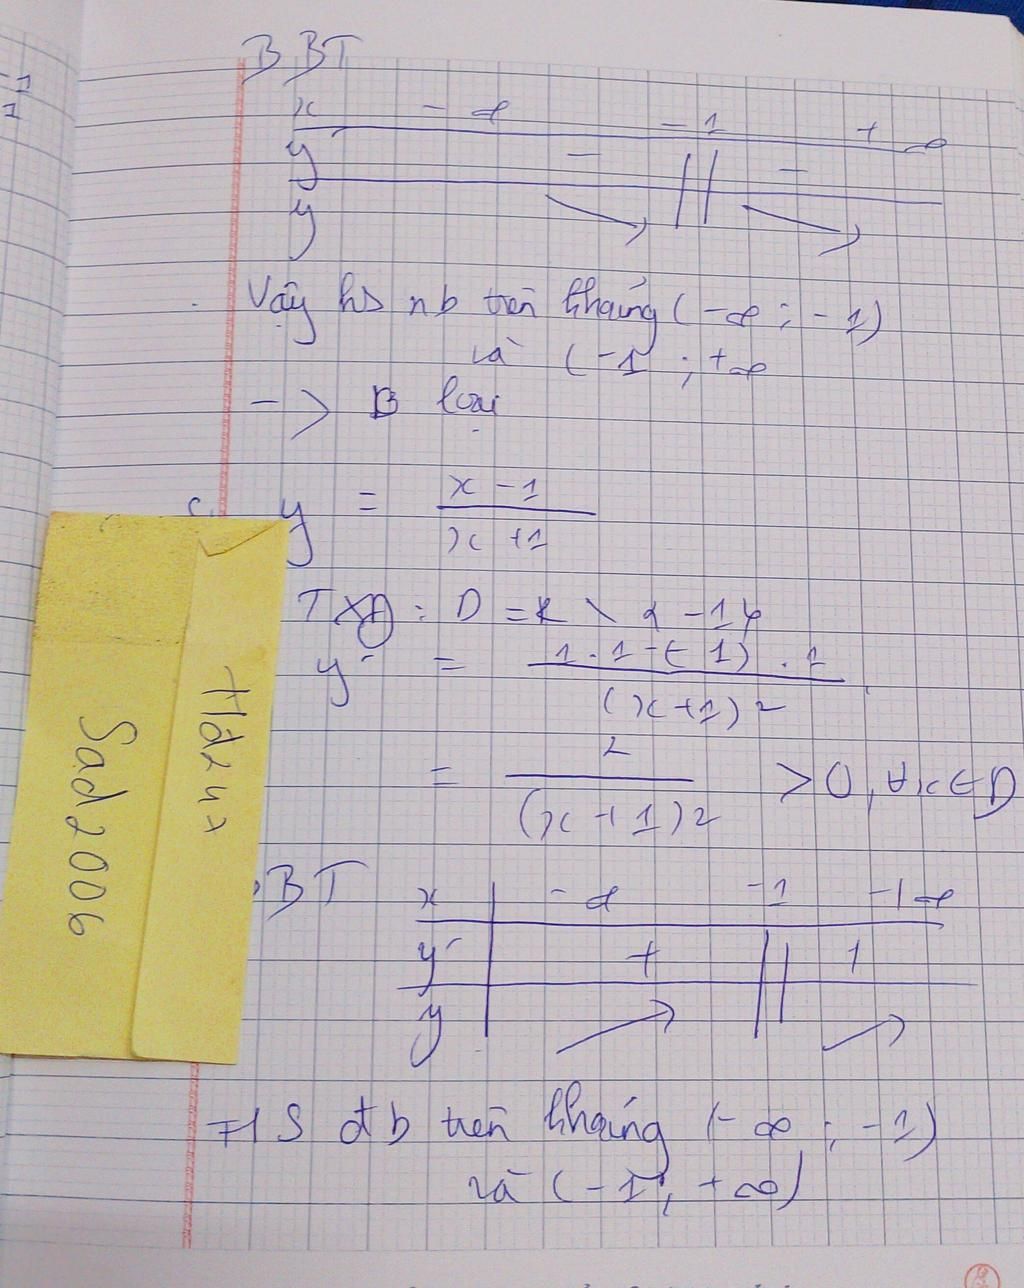 BBT
x -∞ -1 +∞
y' - || -
y
Vậy hs nb trên khoảng (-∞ ; -1)
và (-1 ; +∞
-> B loại
c. y = x-1 / x+1
TXĐ : D = R \ { -1 }
y' = 1.1-(-1).1 / (x+1)2
= 2 / (x+1)2 > 0, ∀x∈D
BBT
x -∞ -1 +∞
y' + || +
y
HS đb trên khoảng (-∞ ; -1)
và (-1 ; +∞)
Sad2006
-1
1